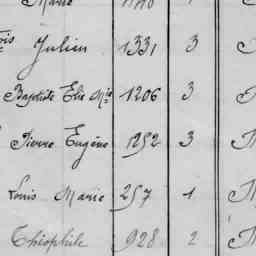 Marie
ois Julien 1331 3
Baptiste Elie Mie 1206 3
Pierre Eugène 1252 3
Louis Marie 257 1
Théophile 928 2